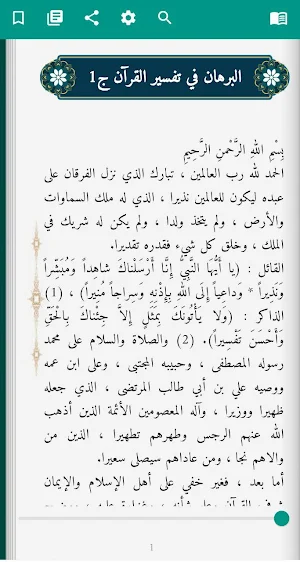 البرهان في تفسير القرآن ج1
بِسْمِ اللهِ الرَّحْمنِ الرَّحِيمِ
الحمد لله رب العالمين ، تبارك الذي نزل الفرقان على
عبده ليكون للعالمين نذيرا ، الذي له ملك السماوات
والأرض ، ولم يتخذ ولدا ، ولم يكن له شريك في
الملك ، وخلق كل شيء فقدره تقديرا.
القائل : (يا أَيُّهَا النَّبِيُّ إِنَّا أَرْسَلْناكَ شاهِداً وَمُبَشِّراً
وَنَذِيراً * وَداعِياً إِلَى اللهِ بِإِذْنِهِ وَسِراجاً مُنِيراً) ، (1)
الذاكر : (وَلا يَأْتُونَكَ بِمَثَلٍ إِلاَّ جِئْناكَ بِالْحَقِّ
وَأَحْسَنَ تَفْسِيراً). (2) والصلاة والسلام على محمد
رسوله المصطفى ، وحبيبه المجتبى ، وعلى ابن عمه
ووصيه علي بن أبي طالب المرتضى ، الذي جعله
ظهيرا ووزيرا ، وآله المعصومين الأئمة الذين أذهب
الله عنهم الرجس وطهرهم تطهيرا ، الذين من
والاهم نجا ، ومن عاداهم سيصلى سعيرا.
أما بعد ، فغير خفي على أهل الإسلام والإيمان
1